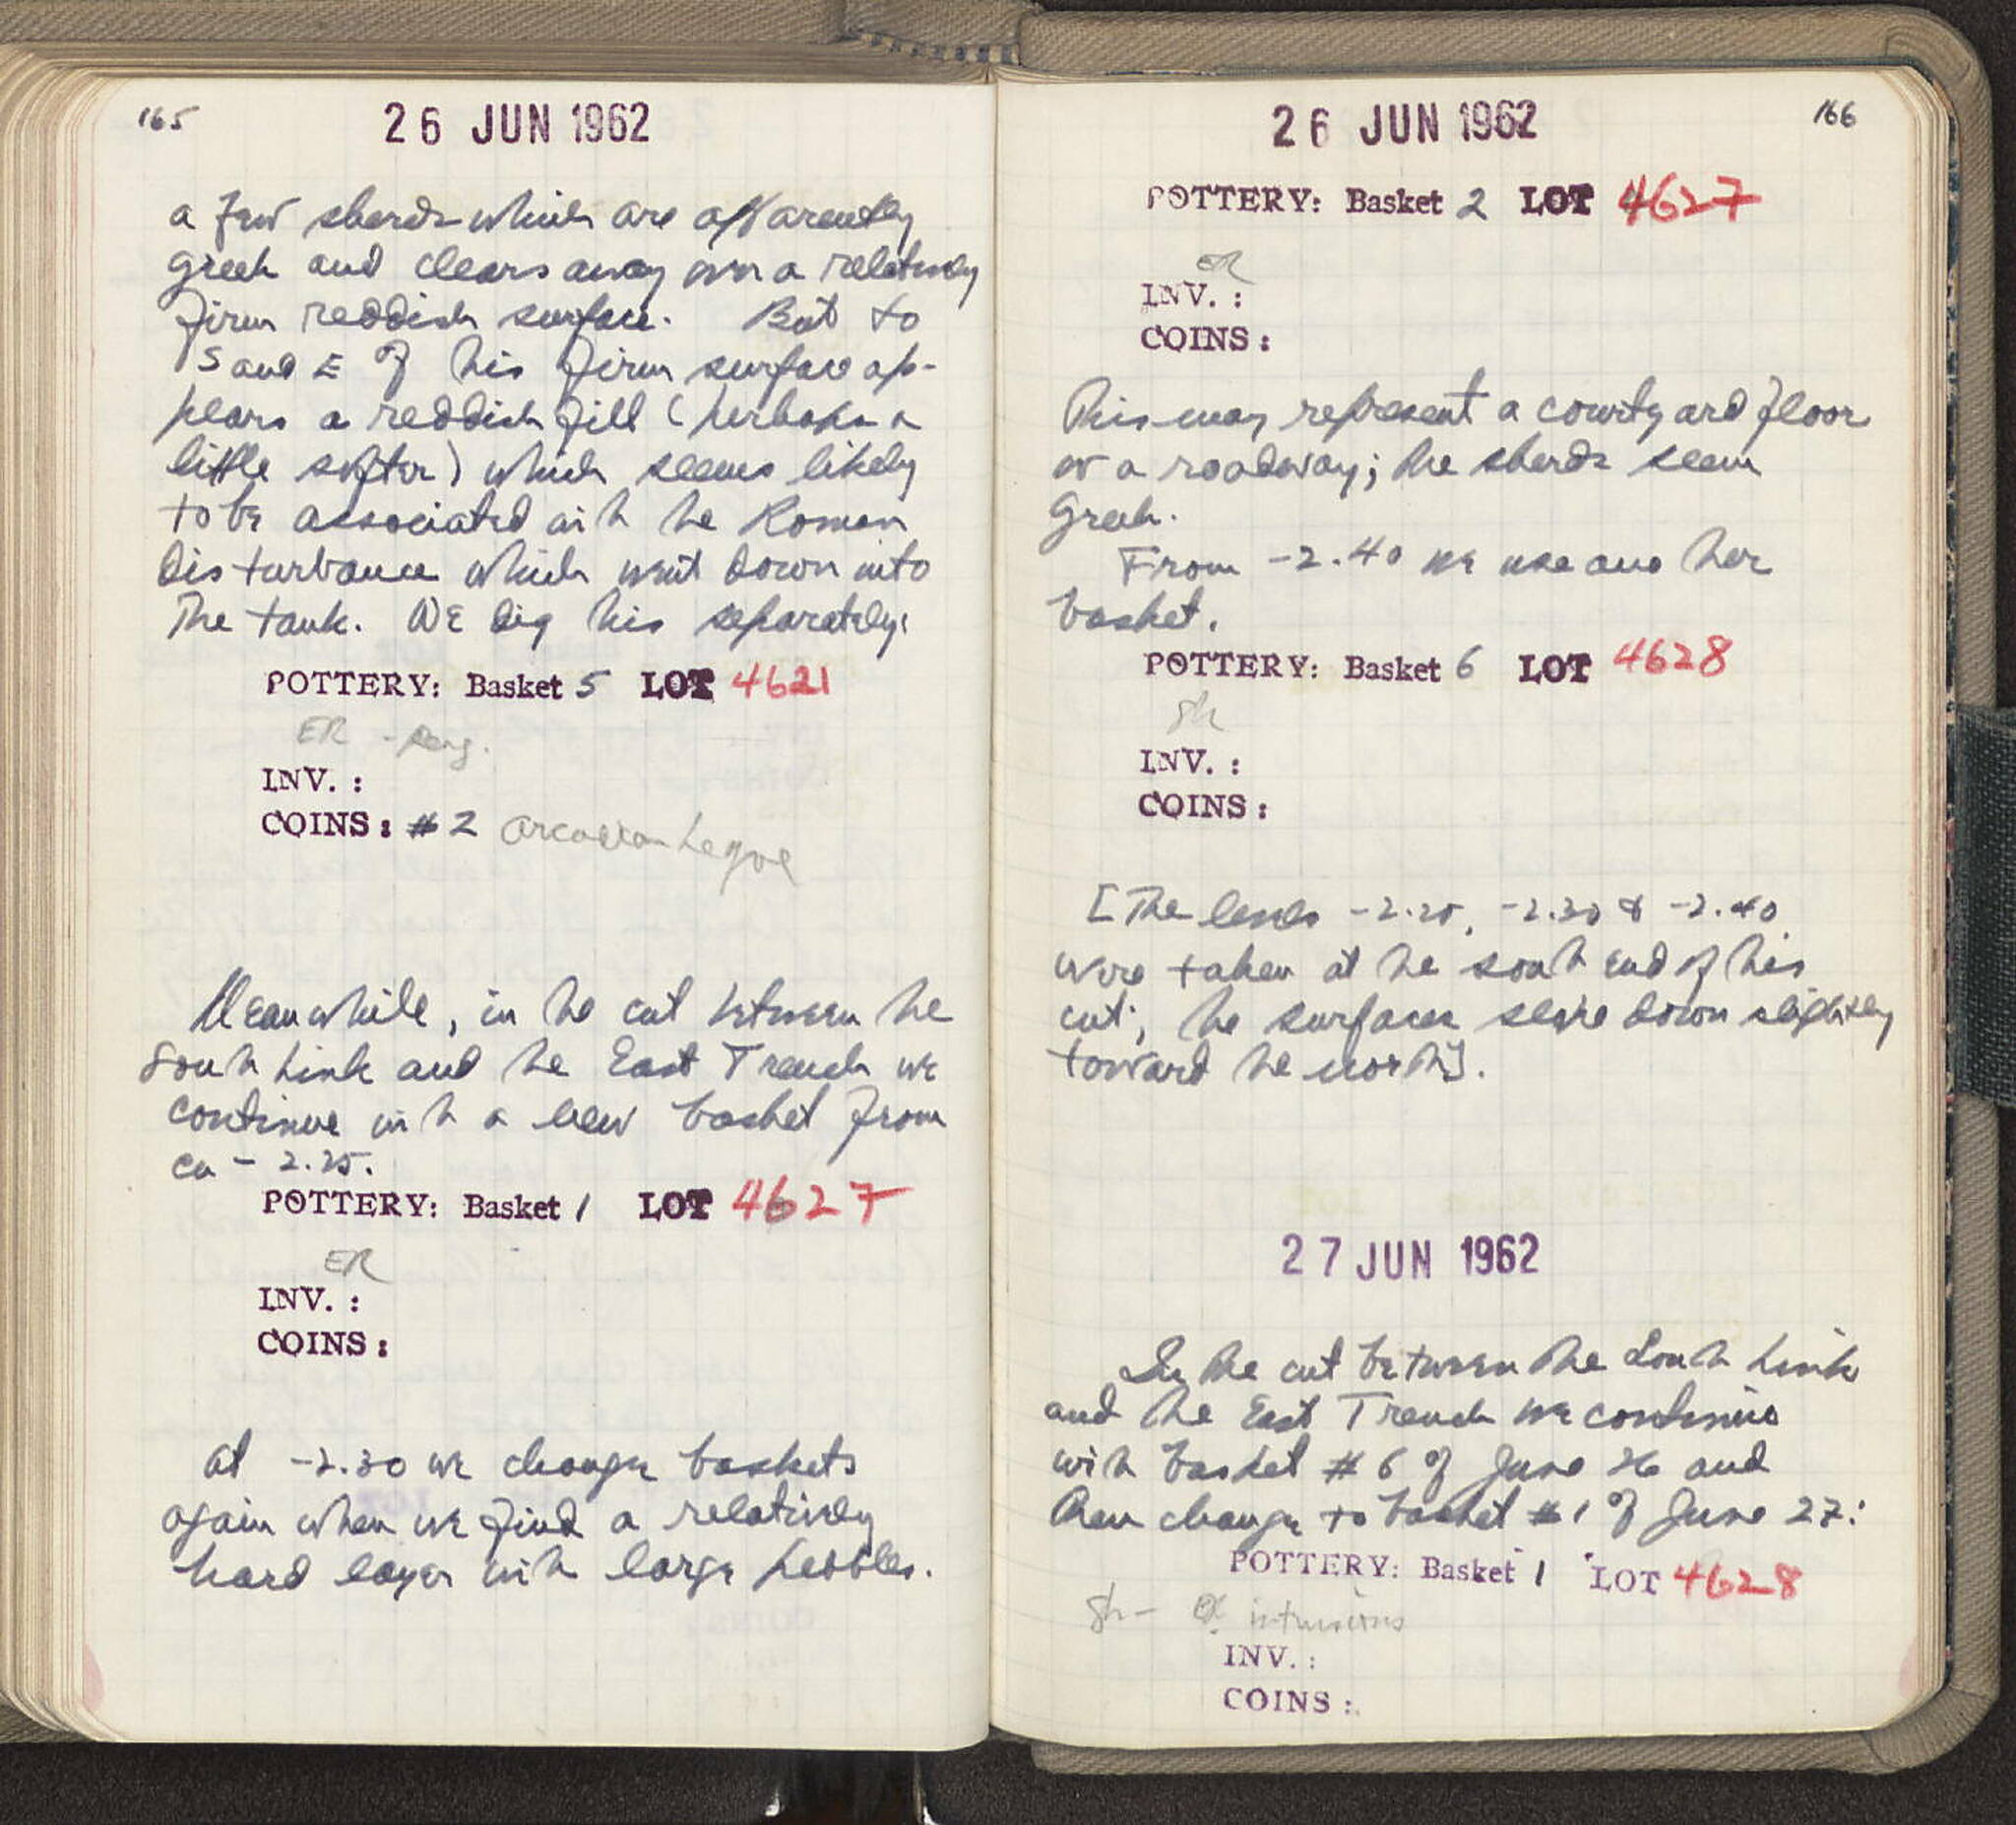 165
26 JUN 1962
a few sherds which are apparently
Greek and clears away over a relatively
firm reddish surface. But to
S and E of this firm surface ap-
pears a reddish fill (perhaps a
little softer) which seems likely
to be associated with the Roman
disturbance which went down into
the tank. We dig this separately:
POTTERY: Basket 5 LOT 4621
ER - Perg.
INV. :
COINS: #2 Arcadian League
Meanwhile, in the cut between the
South Link and the East Trench we
continue with a new basket from
ca - 2.25.
POTTERY: Basket 1 LOT 4627
ER
INV. :
COINS:
At -2.30 we change baskets
again when we find a relatively
hard layer with large pebbles.
26 JUN 1962
166
POTTERY: Basket 2 LOT 4627
ER
INV. :
COINS:
This may represent a courtyard floor
or a roadway; the sherds seem
Greek.
From -2.40 we use another
basket.
POTTERY: Basket 6 LOT 4628
Sh
INV. :
COINS:
[The levels -2.25, -2.30 & -2.40
were taken at the south end of this
cut; the surfaces slope down slightly
toward the north].
27 JUN 1962
In the cut between the South Link
and the East Trench we continue
with basket #6 of June 26 and
then change to basket #1 of June 27:
POTTERY: Basket 1 LOT 4628
Sh - intrusions
INV. :
COINS: